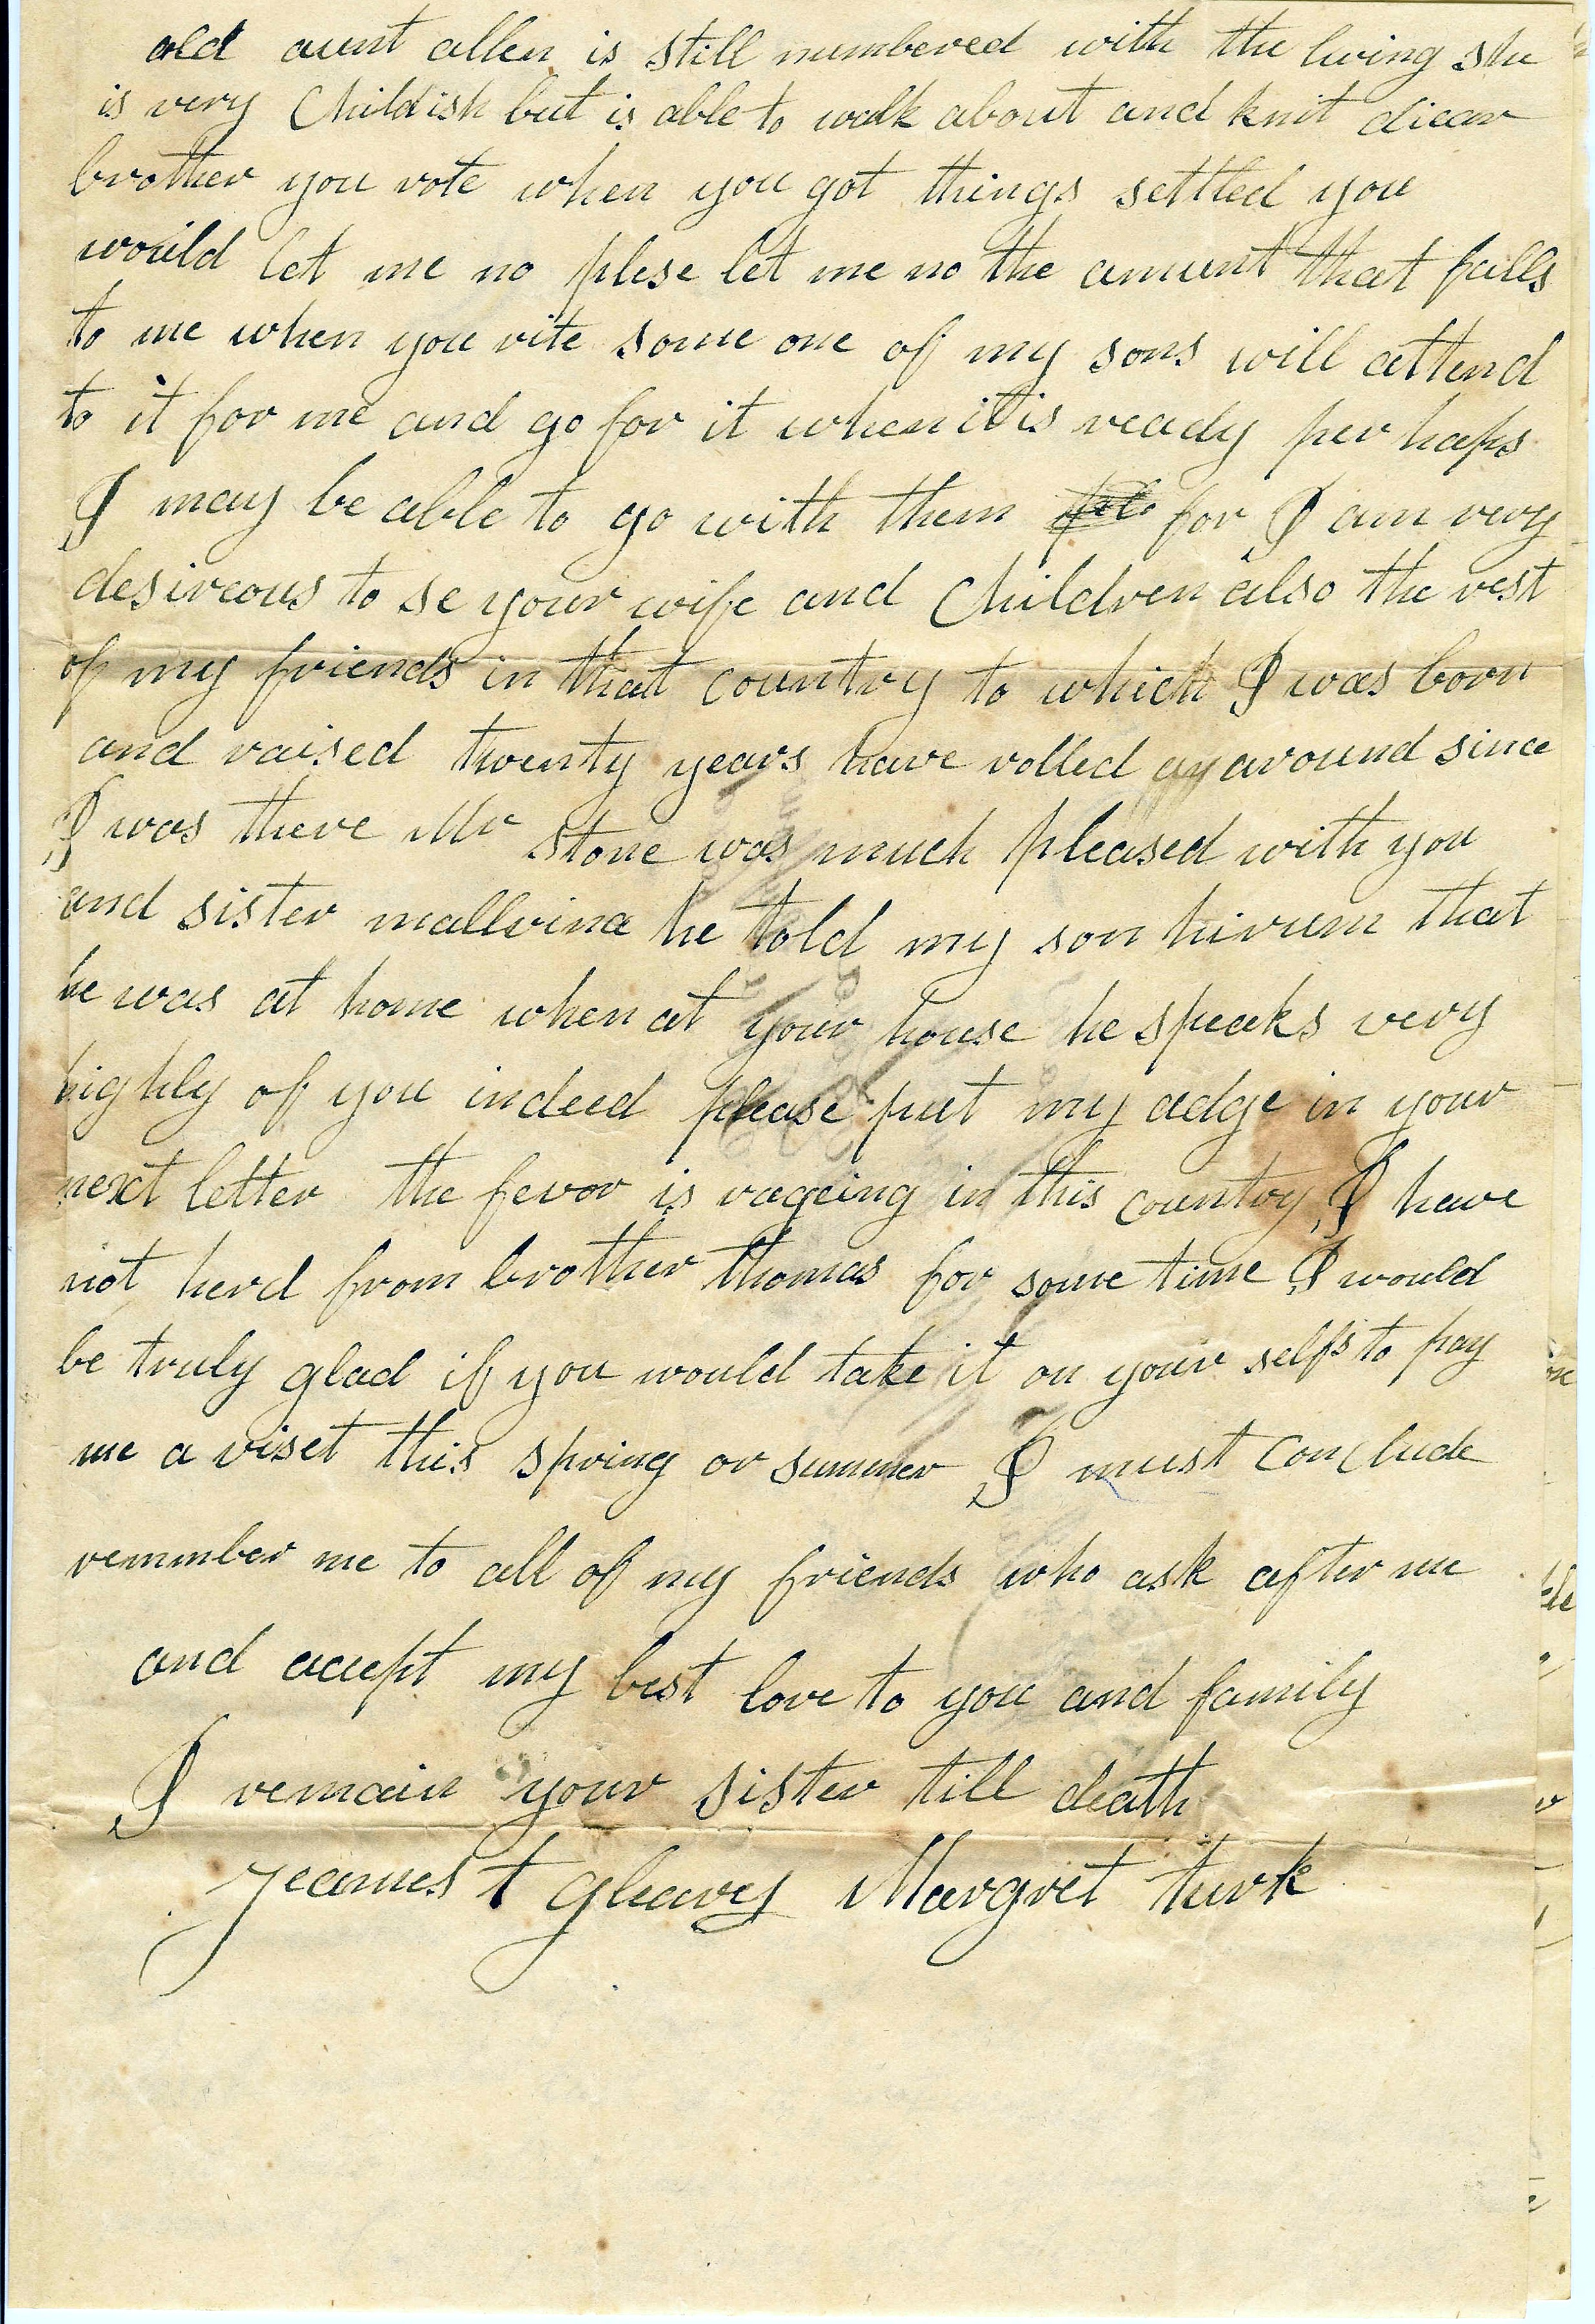 old aunt allen is still numbered with the living she
is very Childish but is able to walk about and knit diear
brother you rote when you got things settled you
would let me no plese let me no the amunt that falls
to me when you rite some one of my sons will attend
to it for me and go for it when it is ready per haps
I may be able to go with them for I am very
desireous to se your wife and Children also the rest
of my friends in that country to which I was born
and raised twenty years have rolled ay around since
I was there Mr stone was much pleased with you
and sister mallvina he told my son hirum that
he was at home when at your house he speaks very
highly of you indeed please put my adge in your
next letter the fevor is rageing in this country I have
not herd from brother thomas for some time I would
be truly glad if you would take it on your selfs to pay
me a viset this spring or summer I must Conclude
remmber me to all of my friends who ask after me
and acept my best love to you and family
I remain your sister till death
Jeames t gleavey Margret turk